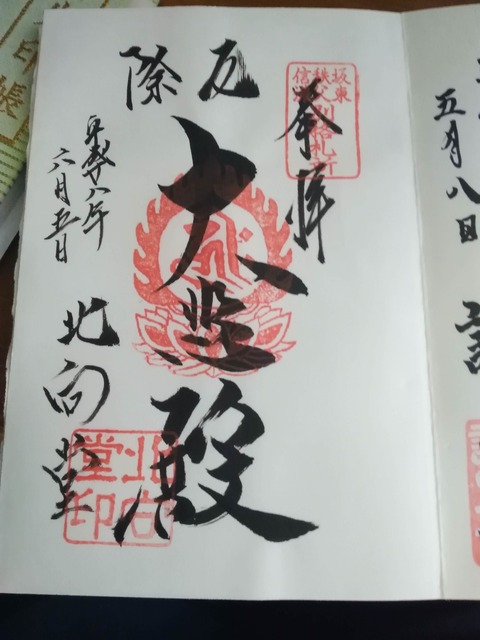 奉拝
坂東
秩父
別格札所
厄除
大悲殿
平成廿八年
六月五日
北向堂
北向
堂印
五月八日
印帳